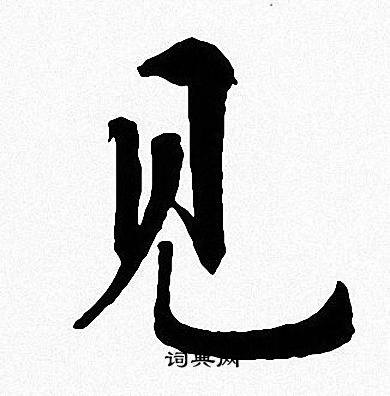 见
词典网